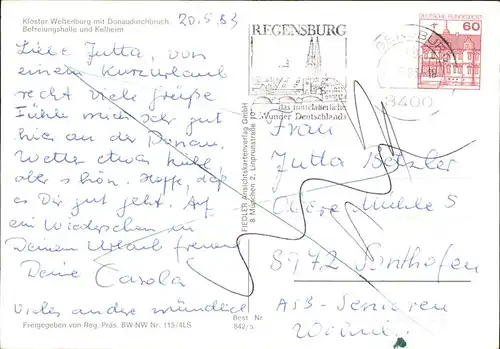 Kloster Weltenburg mit Donaudurchbruch,
Befreiungshalle und Kelheim
20.5.83
Liebe Jutta, von
einem Kurzurlaub
recht viele Grüße
Fühle mich sehr gut
hier an der Donau.
Wetter etwas kühl,
aber schön. Hoffe, daß
es Dir gut geht. Auf
ein Wiedersehen in
Deinem Urlaub freuen
Deine Carola
Vieles andere mündlich
Freigegeben von Reg. Präs. BW-NW Nr. 115/4LS
Best Nr
842/5
FIEDLER Ansichtskartenverlag GmbH
8 München 2, Linprunstraße
REGENSBURG
das mittelalterliche
Wunder Deutschlands
8400
DEUTSCHE BUNDESPOST
60
Frau
Jutta
Obere Mühle 5
8972 Sonthofen